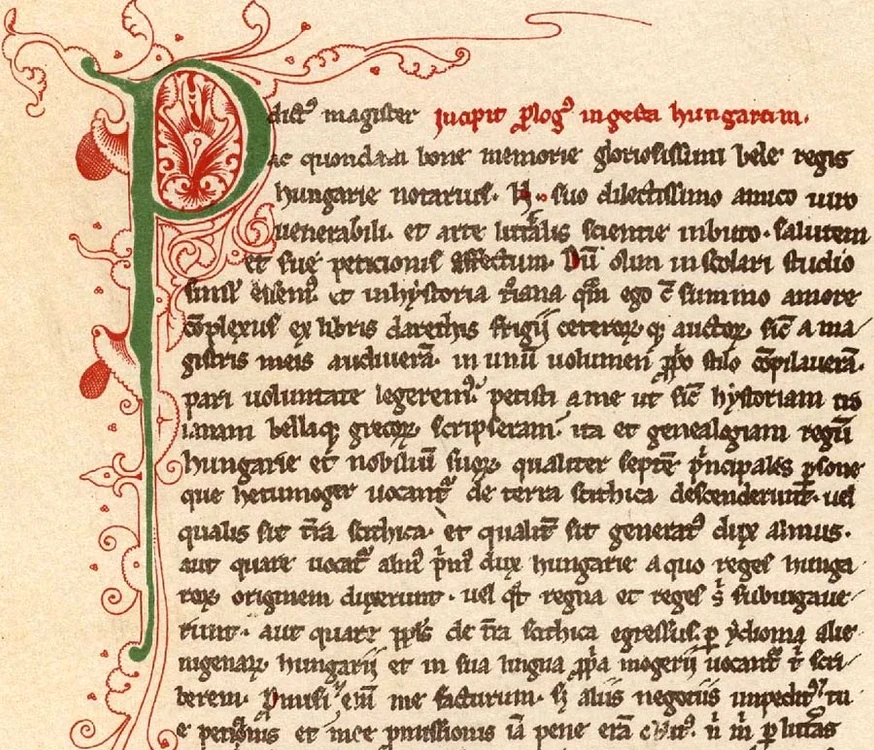 P dictus magister Incipit prologus in gesta hungarum.
ac quondam bone memorie gloriosissimi bele regis
hungarie notarius. N. suo dilectissimo amico uiro
uenerabili. et arte litteralis scientie inbuto. salutem
et sue peticionis effectum. Dum olim in scolari studio
simul essemus. et in hystoria troiana quam ego cum summo amore
complexus ex libris darethis frigij ceterorumque auctorum. sicut a ma/
gistris meis audiueram. in unum uolumen proprio stilo compilaueram.
pari uoluntate legeremus. petisti a me ut sicut hystoriam tro
ianam bellaque grecorum scripseram. ita et genealogiam regum
hungarie et nobilium suorum. qualiter septem principales persone
que hetumoger uocantur de terra scithica descenderunt. uel
qualis sit terra scithica. et qualiter sit generatus dux almus.
aut quare uocatur almus primus dux hungarie a quo reges hunga/
rorum originem duxerunt. uel quot regna et reges sibi subiugaue/
runt. aut quare populus de terra scithica egressus. per ydioma alie/
nigenarum hungarij et in sua lingua propria mogerij uocantur tibi scri/
berem. Promisi etenim me facturum. sed aliis negotiis impeditus. tu
e peticionis et mee promissionis iam pene eram oblitus. nisi mihi per litteras